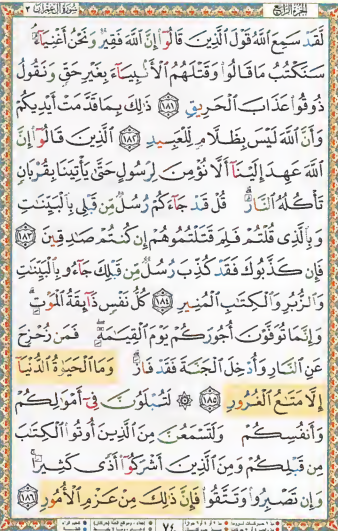 الجزء الرابع سورة آل عمران ٣
لَّقَدْ سَمِعَ اللَّهُ قَوْلَ الَّذِينَ قَالُوا إِنَّ اللَّهَ فَقِيرٌ وَنَحْنُ أَغْنِيَاءُ
سَنَكْتُبُ مَا قَالُوا وَقَتْلَهُمُ الْأَنبِيَاءَ بِغَيْرِ حَقٍّ وَنَقُولُ
ذُوقُوا عَذَابَ الْحَرِيقِ ١٨١ ذَٰلِكَ بِمَا قَدَّمَتْ أَيْدِيكُمْ
وَأَنَّ اللَّهَ لَيْسَ بِظَلَّامٍ لِّلْعَبِيدِ ١٨٢ الَّذِينَ قَالُوا إِنَّ
اللَّهَ عَهِدَ إِلَيْنَا أَلَّا نُؤْمِنَ لِرَسُولٍ حَتَّىٰ يَأْتِيَنَا بِقُرْبَانٍ
تَأْكُلُهُ النَّارُ قُلْ قَدْ جَاءَكُمْ رُسُلٌ مِّن قَبْلِي بِالْبَيِّنَاتِ
وَبِالَّذِي قُلْتُمْ فَلِمَ قَتَلْتُمُوهُمْ إِن كُنتُمْ صَادِقِينَ ١٨٣
فَإِن كَذَّبُوكَ فَقَدْ كُذِّبَ رُسُلٌ مِّن قَبْلِكَ جَاءُو بِالْبَيِّنَاتِ
وَالزُّبُرِ وَالْكِتَابِ الْمُنِيرِ ١٨٤ كُلُّ نَفْسٍ ذَائِقَةُ الْمَوْتِ
وَإِنَّمَا تُوَفَّوْنَ أُجُورَكُمْ يَوْمَ الْقِيَامَةِ فَمَن زُحْزِحَ
عَنِ النَّارِ وَأُدْخِلَ الْجَنَّةَ فَقَدْ فَازَ وَمَا الْحَيَاةُ الدُّنْيَا
إِلَّا مَتَاعُ الْغُرُورِ ١٨٥ ۞ لَتُبْلَوُنَّ فِي أَمْوَالِكُمْ
وَأَنفُسِكُمْ وَلَتَسْمَعُنَّ مِنَ الَّذِينَ أُوتُوا الْكِتَابَ
مِن قَبْلِكُمْ وَمِنَ الَّذِينَ أَشْرَكُوا أَذًى كَثِيرًا
وَإِن تَصْبِرُوا وَتَتَّقُوا فَإِنَّ ذَٰلِكَ مِنْ عَزْمِ الْأُمُورِ ١٨٦
٧٤